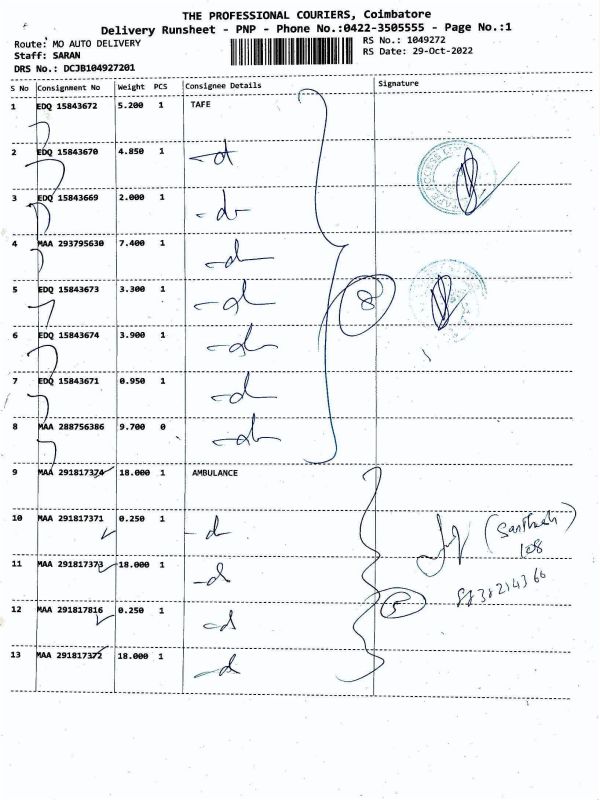 THE PROFESSIONAL COURIERS, Coimbatore
Delivery Runsheet - PNP - Phone No.:0422-3505555 - Page No.:1
Route: MO AUTO DELIVERY
RS No.: 1049272
Staff: SARAN
RS Date: 29-Oct-2022
DRS No.: DCJB104927201
S No Consignment No Weight PCS Consignee Details Signature
1 EDQ 15843672 5.200 1 TAFE
2 EDQ 15843670 4.850 1 -d
3 EDQ 15843669 2.000 1 -do
4 MAA 293795630 7.400 1 -d
5 EDQ 15843673 3.300 1 -d
8
6 EDQ 15843674 3.900 1 -do
7 EDQ 15843671 0.950 1 -d
8 MAA 288756386 9.700 0 -do
9 MAA 291817374 18.000 1 AMBULANCE
10 MAA 291817371 0.250 1 -d
(Santhosh)
108
11 MAA 291817373 18.000 1 -d
12 MAA 291817816 0.250 1 -d
5
13 MAA 291817372 18.000 1 -d